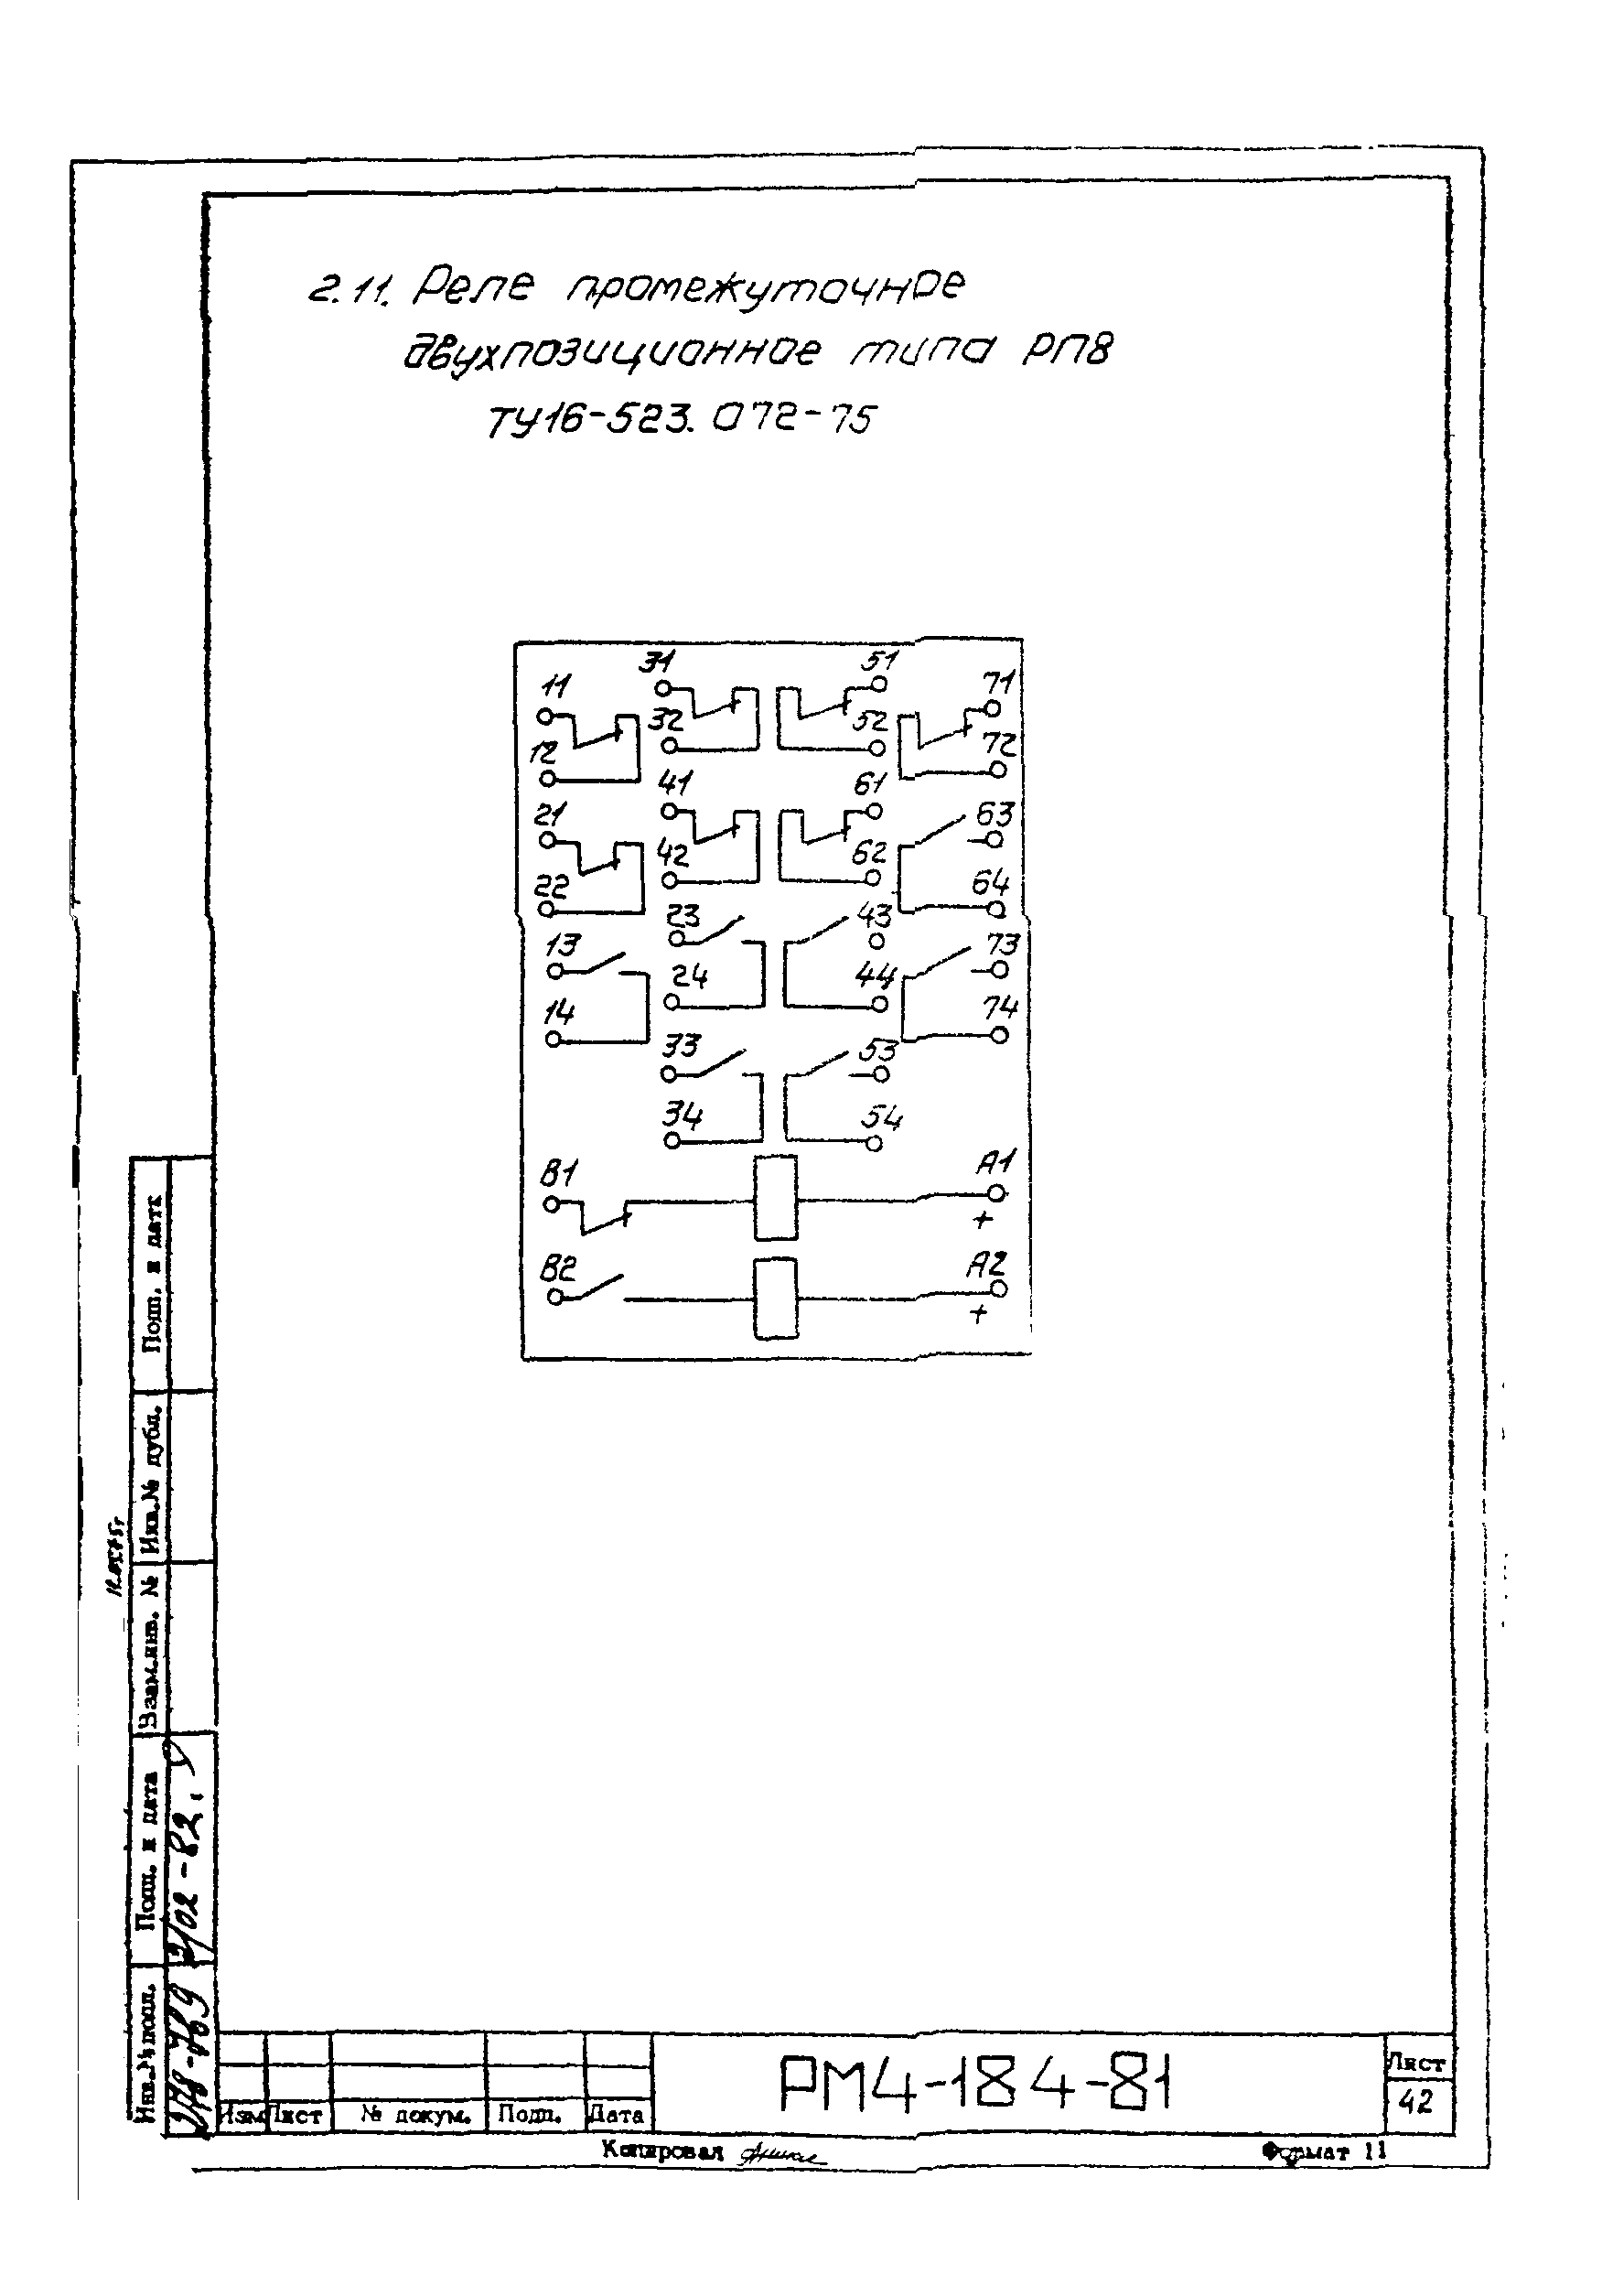 2.11. Реле промежуточное
двухпозиционное типа РП8
ТУ16-523.072-75
31
51
11
71
32
52
12
72
41
61
21
63
42
62
22
64
23
43
13
73
24
44
14
74
33
53
34
54
В1
А1
+
В2
А2
+
Подп. и дата
Инв.№ дубл.
Взам.инв. №
Подп. и дата
Инв.№ подл.
Изм
Лист
№ докум.
Подп.
Дата
РМ4-184-81
Лист
42
Копировал
Формат 11